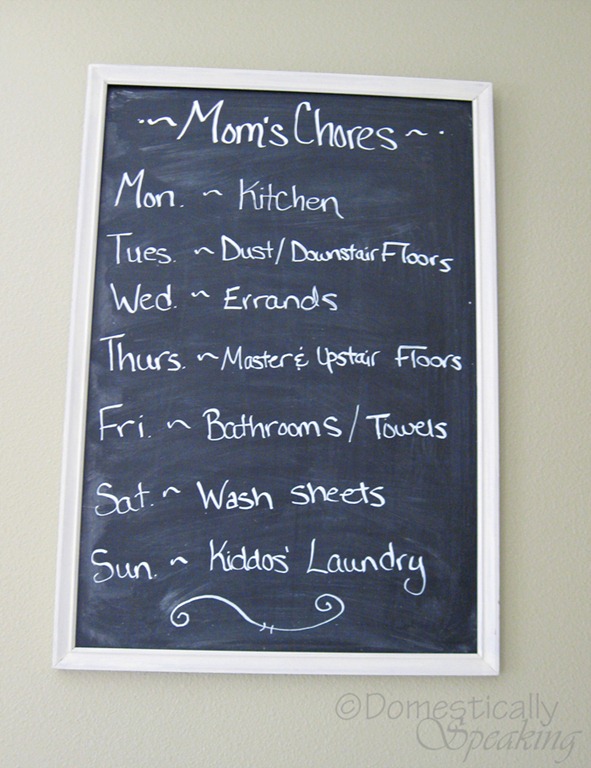 ~ Mom's Chores ~
Mon. ~ Kitchen
Tues. ~ Dust/Downstair Floors
Wed. ~ Errands
Thurs. ~ Master & Upstair Floors
Fri. ~ Bathrooms / Towels
Sat. ~ Wash sheets
Sun. ~ Kiddos' Laundry
©Domestically
Speaking